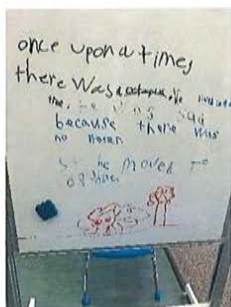 once upon a times
there was a octopus. He
the. He was sad
because there was
no water.
So he moved to